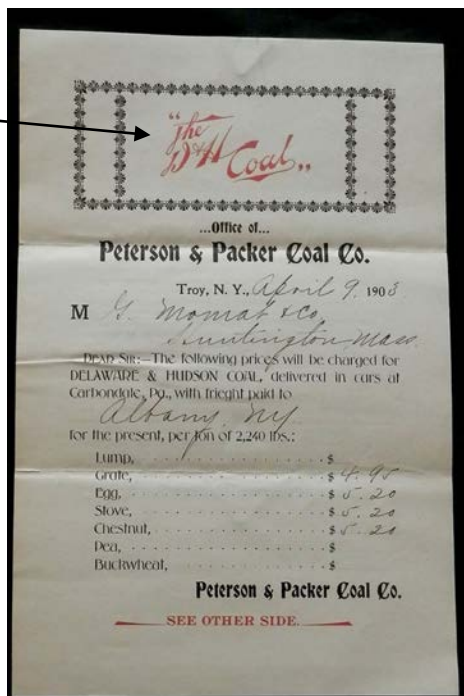 "The
D & H Coal"
...Office of...
Peterson & Packer Coal Co.
Troy, N. Y., April 9. 1903
M G. & Co.
Huntington Mass.
DEAR SIR:—The following prices will be charged for
DELAWARE & HUDSON COAL, delivered in cars at
Carbondale, Pa., with frieght paid to
Albany, Ny.
for the present, per ton of 2,240 lbs.:
Lump, $
Grate, $ 4.95
Egg, $ 5.20
Stove, $ 5.20
Chestnut, $ 5.20
Pea, $
Buckwheat, $
Peterson & Packer Coal Co.
SEE OTHER SIDE.